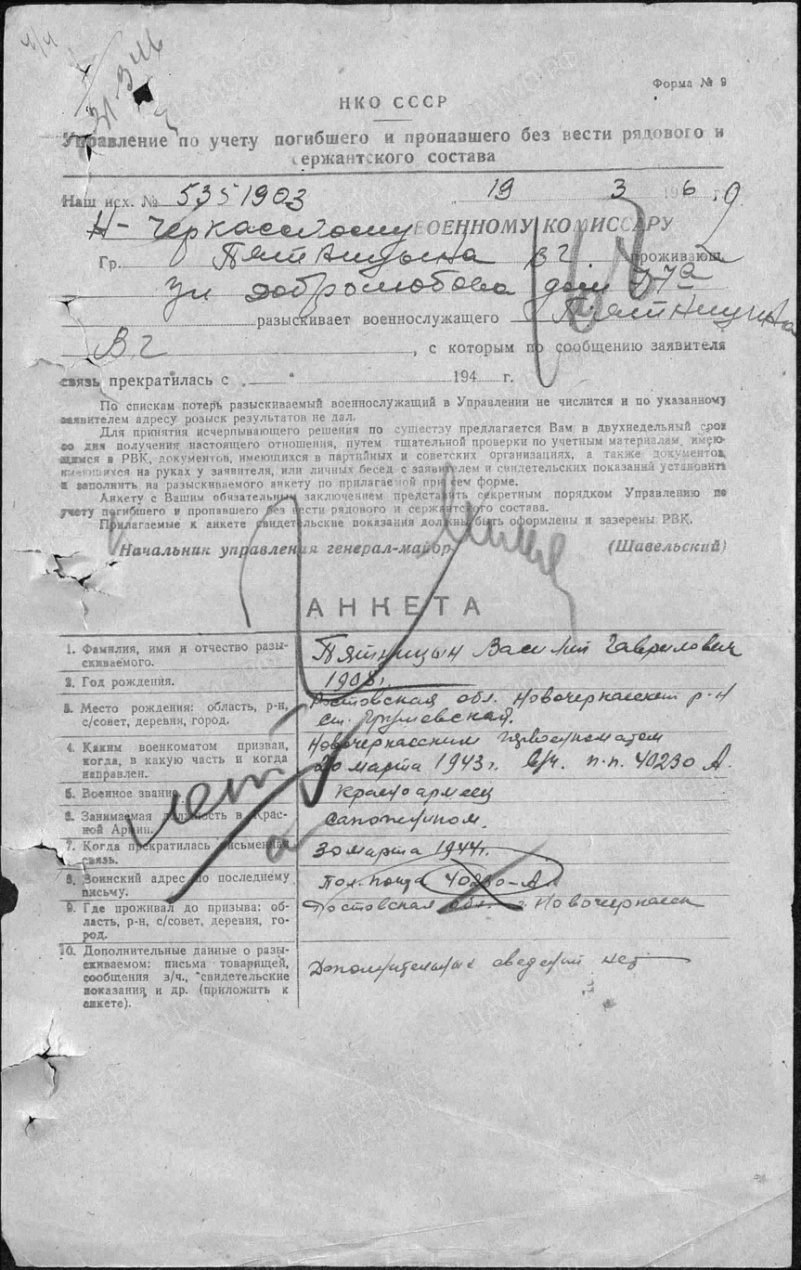 Форма № 9
НКО СССР
Управление по учету погибшего и пропавшего без вести рядового и
сержантского состава
Наш исх. № 5351903 „ 19 3 6
Н-Черкасскому ВОЕННОМУ КОМИССАРУ
Гр. Пятницына В г проживающ
ул Добролюбова дом
разыскивает военнослужащего Пятницына
В г , с которым по сообщению заявителя
связь прекратилась с „ “ 194 г.
По спискам потерь разыскиваемый военнослужащий в Управлении не числится и по указанному
заявителем адресу розыск результатов не дал.
Для принятия исчерпывающего решения по существу предлагается Вам в двухнедельный срок
со дня получения настоящего отношения, путем тщательной проверки по учетным материалам, имею-
щимся в РВК, документов, имеющихся в партийных и советских организациях, а также документов,
имеющихся на руках у заявителя, или личных бесед с заявителем и свидетельских показаний установить
и заполнить на разыскиваемого анкету по прилагаемой при сем форме.
Анкету с Вашим обязательным заключением представить секретным порядком Управлению по
учету погибшего и пропавшего без вести рядового и сержантского состава.
Прилагаемые к анкете свидетельские показания должны быть оформлены и заверены РВК.
Начальник управления генерал-майор (Шавельский)
АНКЕТА
1. Фамилия, имя и отчество разы-
скиваемого.
Пятницын Василий Гаврилович
2. Год рождения.
1908г.
3. Место рождения: область, р-н,
с/совет, деревня, город.
Ростовская обл. Новочеркасский р-н
ст. Грушевская.
4. Каким военкоматом призван,
когда, в какую часть и когда
направлен.
Новочеркасским
20 марта 1943г. в/ч. п.п. 40230 А.
5. Военное звание
красноармеец
6. Занимаемая должность в Крас-
ной Армии.
сапожником.
7. Когда прекратилась письменная
связь.
30 марта 1944г.
8. Воинский адрес по последнему
письму.
Пол. почта 40230-А.
9. Где проживал до призыва: об-
ласть, р-н, с/совет, деревня, го-
род.
Ростовская обл. г. Новочеркасск
10. Дополнительные данные о разы-
скиваемом: письма товарищей,
сообщения в/ч., свидетельские
показания и др. (приложить к
анкете).
Дополнительных сведений нет